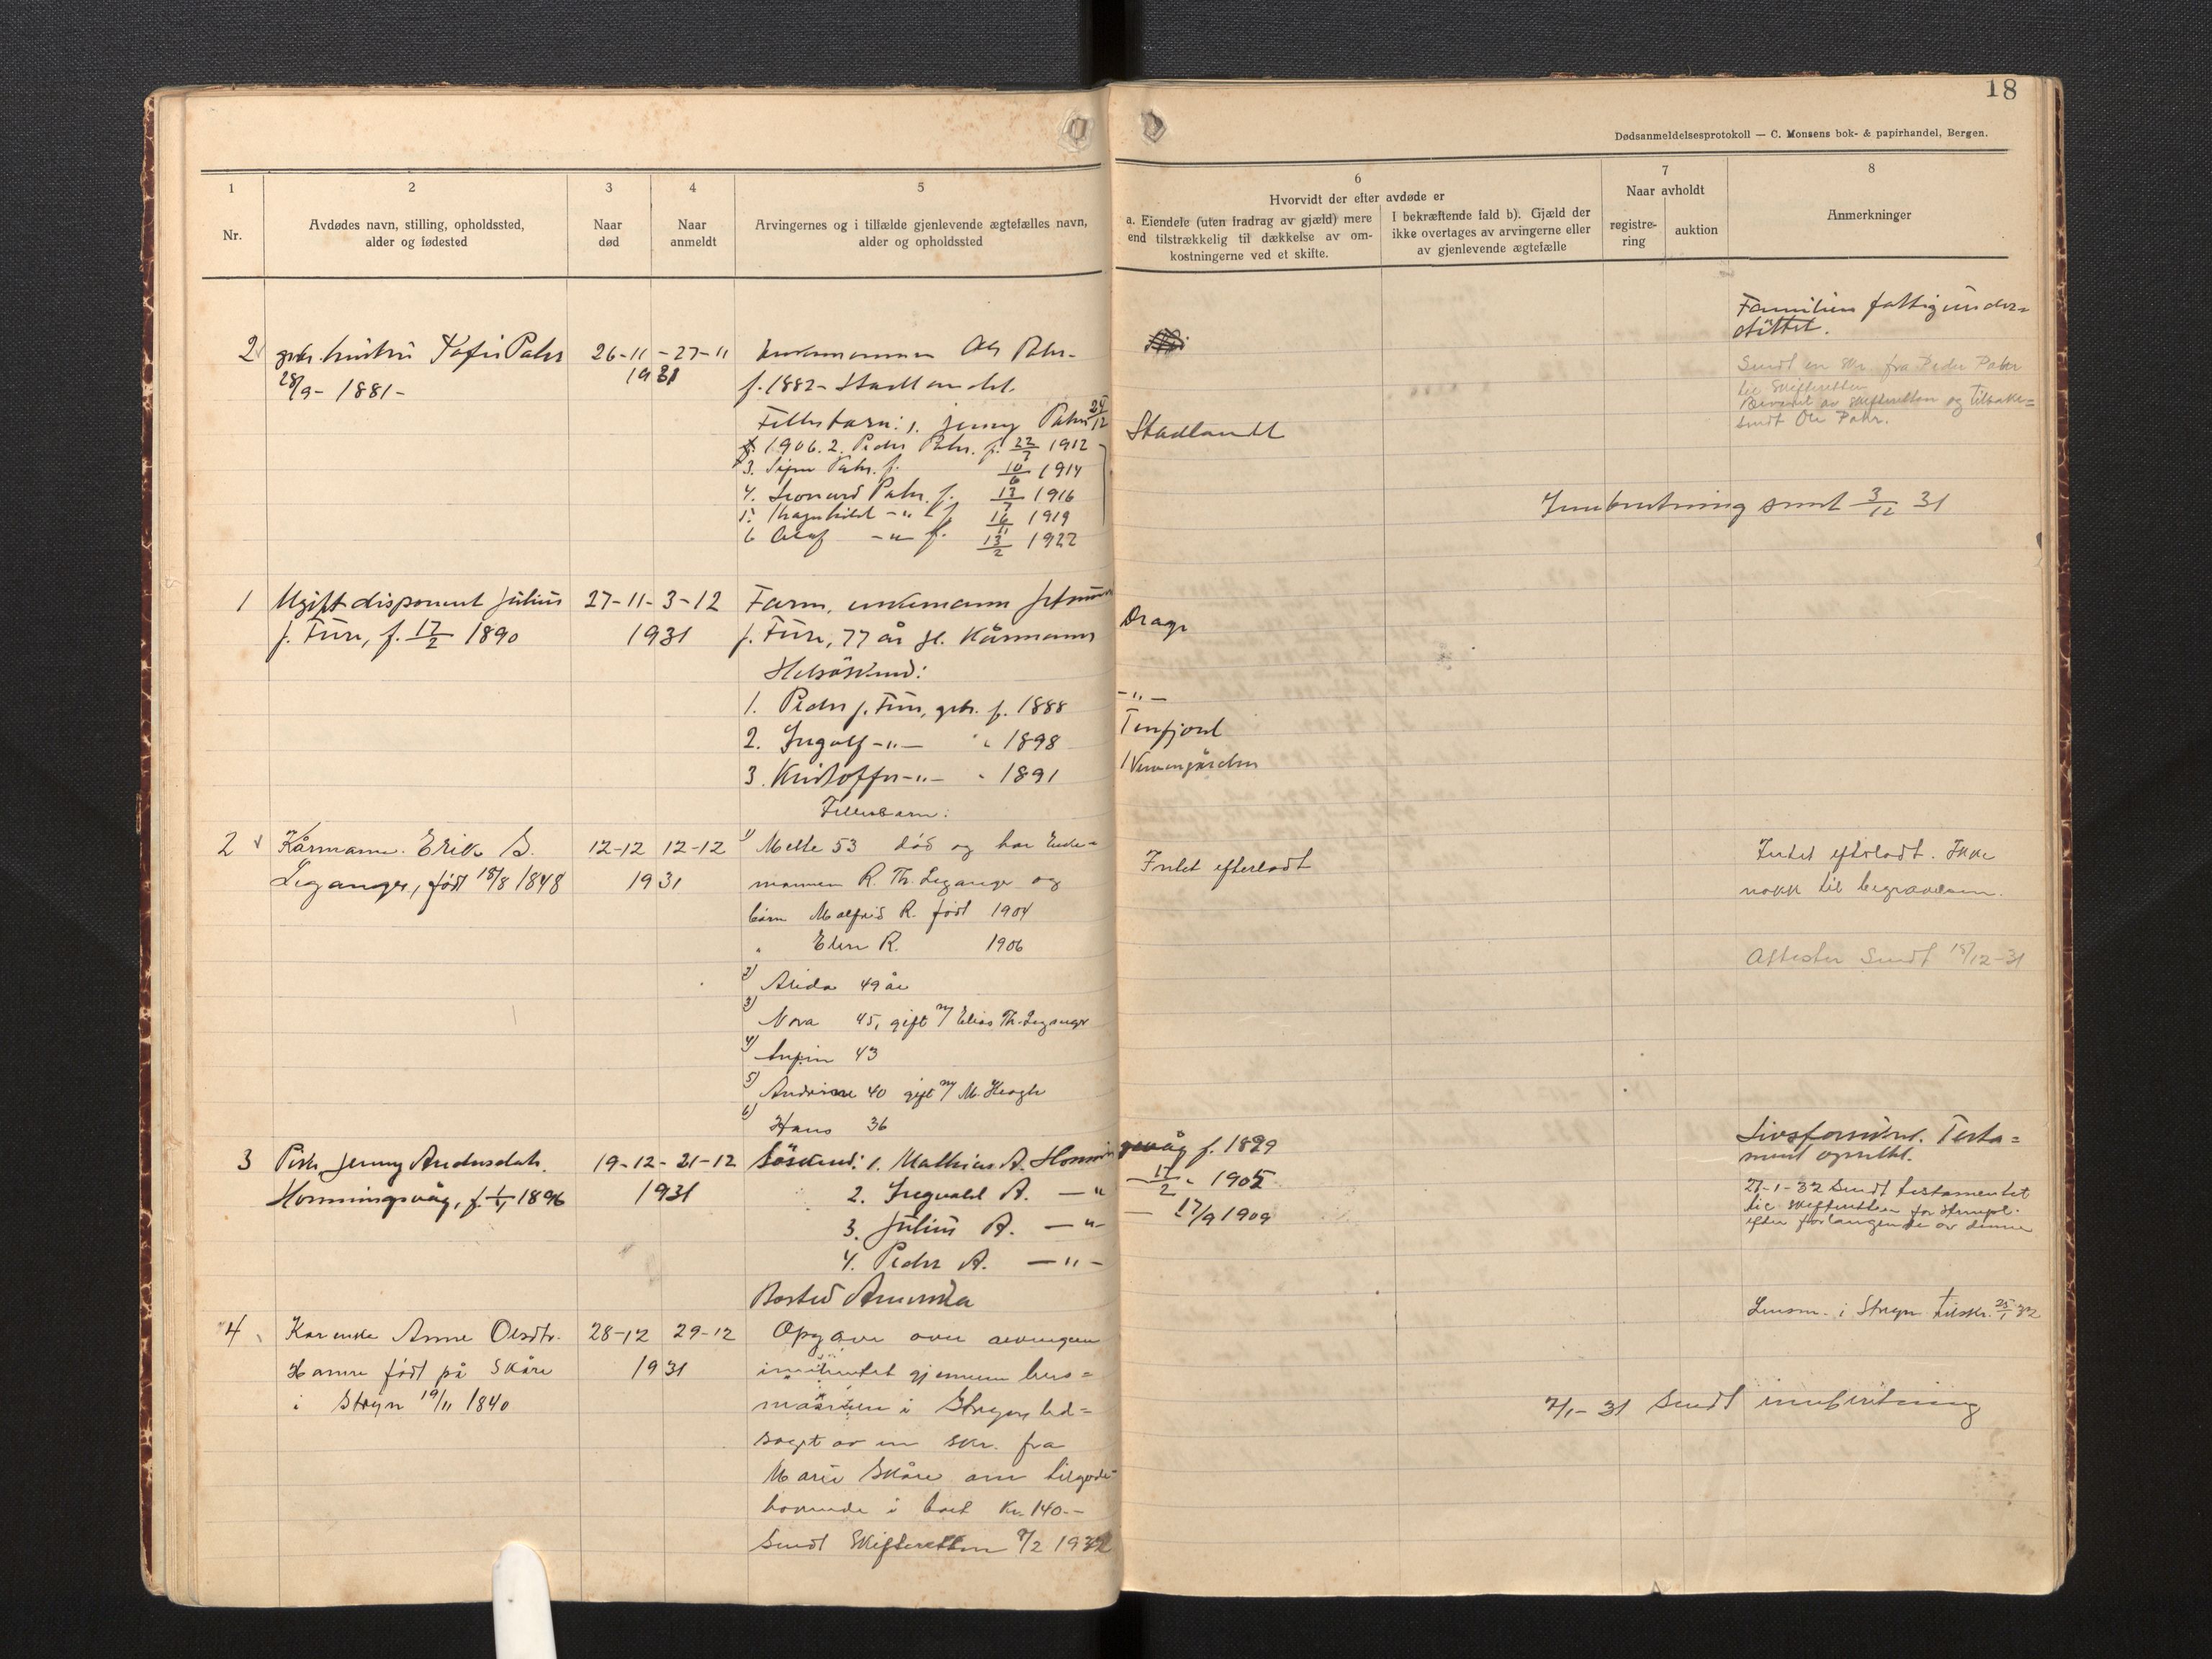 18
Dødsanmeldelsesprotokoll — C. Monsens bok- & papirhandel, Bergen.
1
Nr.
2
Avdødes navn, stilling, opholdssted,
alder og fødested
3
Naar
død
4
Naar
anmeldt
5
Arvingernes og i tilfælde gjenlevende ægtefælles navn,
alder og opholdssted
6
Hvorvidt der efter avdøde er
a. Eiendele (uten fradrag av gjæld) mere
end tilstrækkelig til dækkelse av om-
kostningerne ved et skifte.
I bekræftende fald b). Gjæld der
ikke overtages av arvingerne eller
av gjenlevende ægtefælle
7
Naar avholdt
registre-
ring
auktion
8
Anmerkninger
2 gbr. hustru Pahr 26-11-27-11
28/9- 1881-
1931
enkemannen Ole Pahr-
f. 1882- Stadlandet.
Fellesbarn: 1. Jenny Pahr 24/12
f. 1906. 2. Peder Pahr. f. 22/7 1912
3. Pahr. f. 10/6 1914
4. Leonard Pahr. f. 13/7 1916
5. Ragnhild -"- f. 16/11 1919
6 Olaf -"- f. 13/2 1922
Stadlandt
Familien fattigunder=
støttet.
Sendt en skr. fra Peder Pahr
til Skifteretten
av skifteretten og tilbake=
sendt Ole Pahr.
Innberetning sendt 3/12 31
1 Ugift disponent Julius
J. Fure, f. 17/2 1890
27-11-3-12
1931
Farm, enkemann
J. Fure, 77 år gl. Kårmann
Drage
Helsøsken:
1. Peder J. Fure, gbr. f. 1888
-"-
2. Ingolf -"- " 1898
Tenfjord
3. Kristoffer -"- " 1891
Fellesbarn:
2 Kårmann. Erik S.
Leganger, født 18/8 1848
12-12 12-12
1931
1) Mette 53 død og har Enke=
mannen R. Th. Leganger og
barn Malfrid R. født 1904
" Elen R. 1906
2) Alida 49 år
3) Nora 45, gift m/ Elias Th. Leganger
4) 43
5) Andrine 40 gift m/ M.
6) Hans 36
Intet efterladt
Intet efterladt. Ikke
nokk til begravelsen.
Attester Sendt 15/12-31
3 Jenny Andersdatr.
Honningsvåg, f. 1/1 1896
19-12-21-12
1931
Søsken: 1. Mathias A. Honnin
gsvåg f. 1899
2. Ingvald A. -"
- 17/2 " 1905
3. Julius A. -"-
- 27/9 1909
4. Peder A. -"-
Bosted Amerika
Livsforsikret. Testa=
ment oprettet.
27-1-32 Sendt testamentet
til skifteretten for stempl.
efter forlangende av denne
4 Kar enke Anne Olsdtr.
Hamre født på Skåre
i Stryn 19/11 1840
28-12 29-12
1931
Opgave over arvingene
innhentet gjennem lens=
mannen i Stryn, led=
saget av en skr. fra
Marie Skåre om tilgode=
havende i boet Kr. 140.-
Sendt Skifteretten 9/2 1932
Lensm. i Stryn tilskr. 25/1 32
7/1- 31 Sendt innberetning